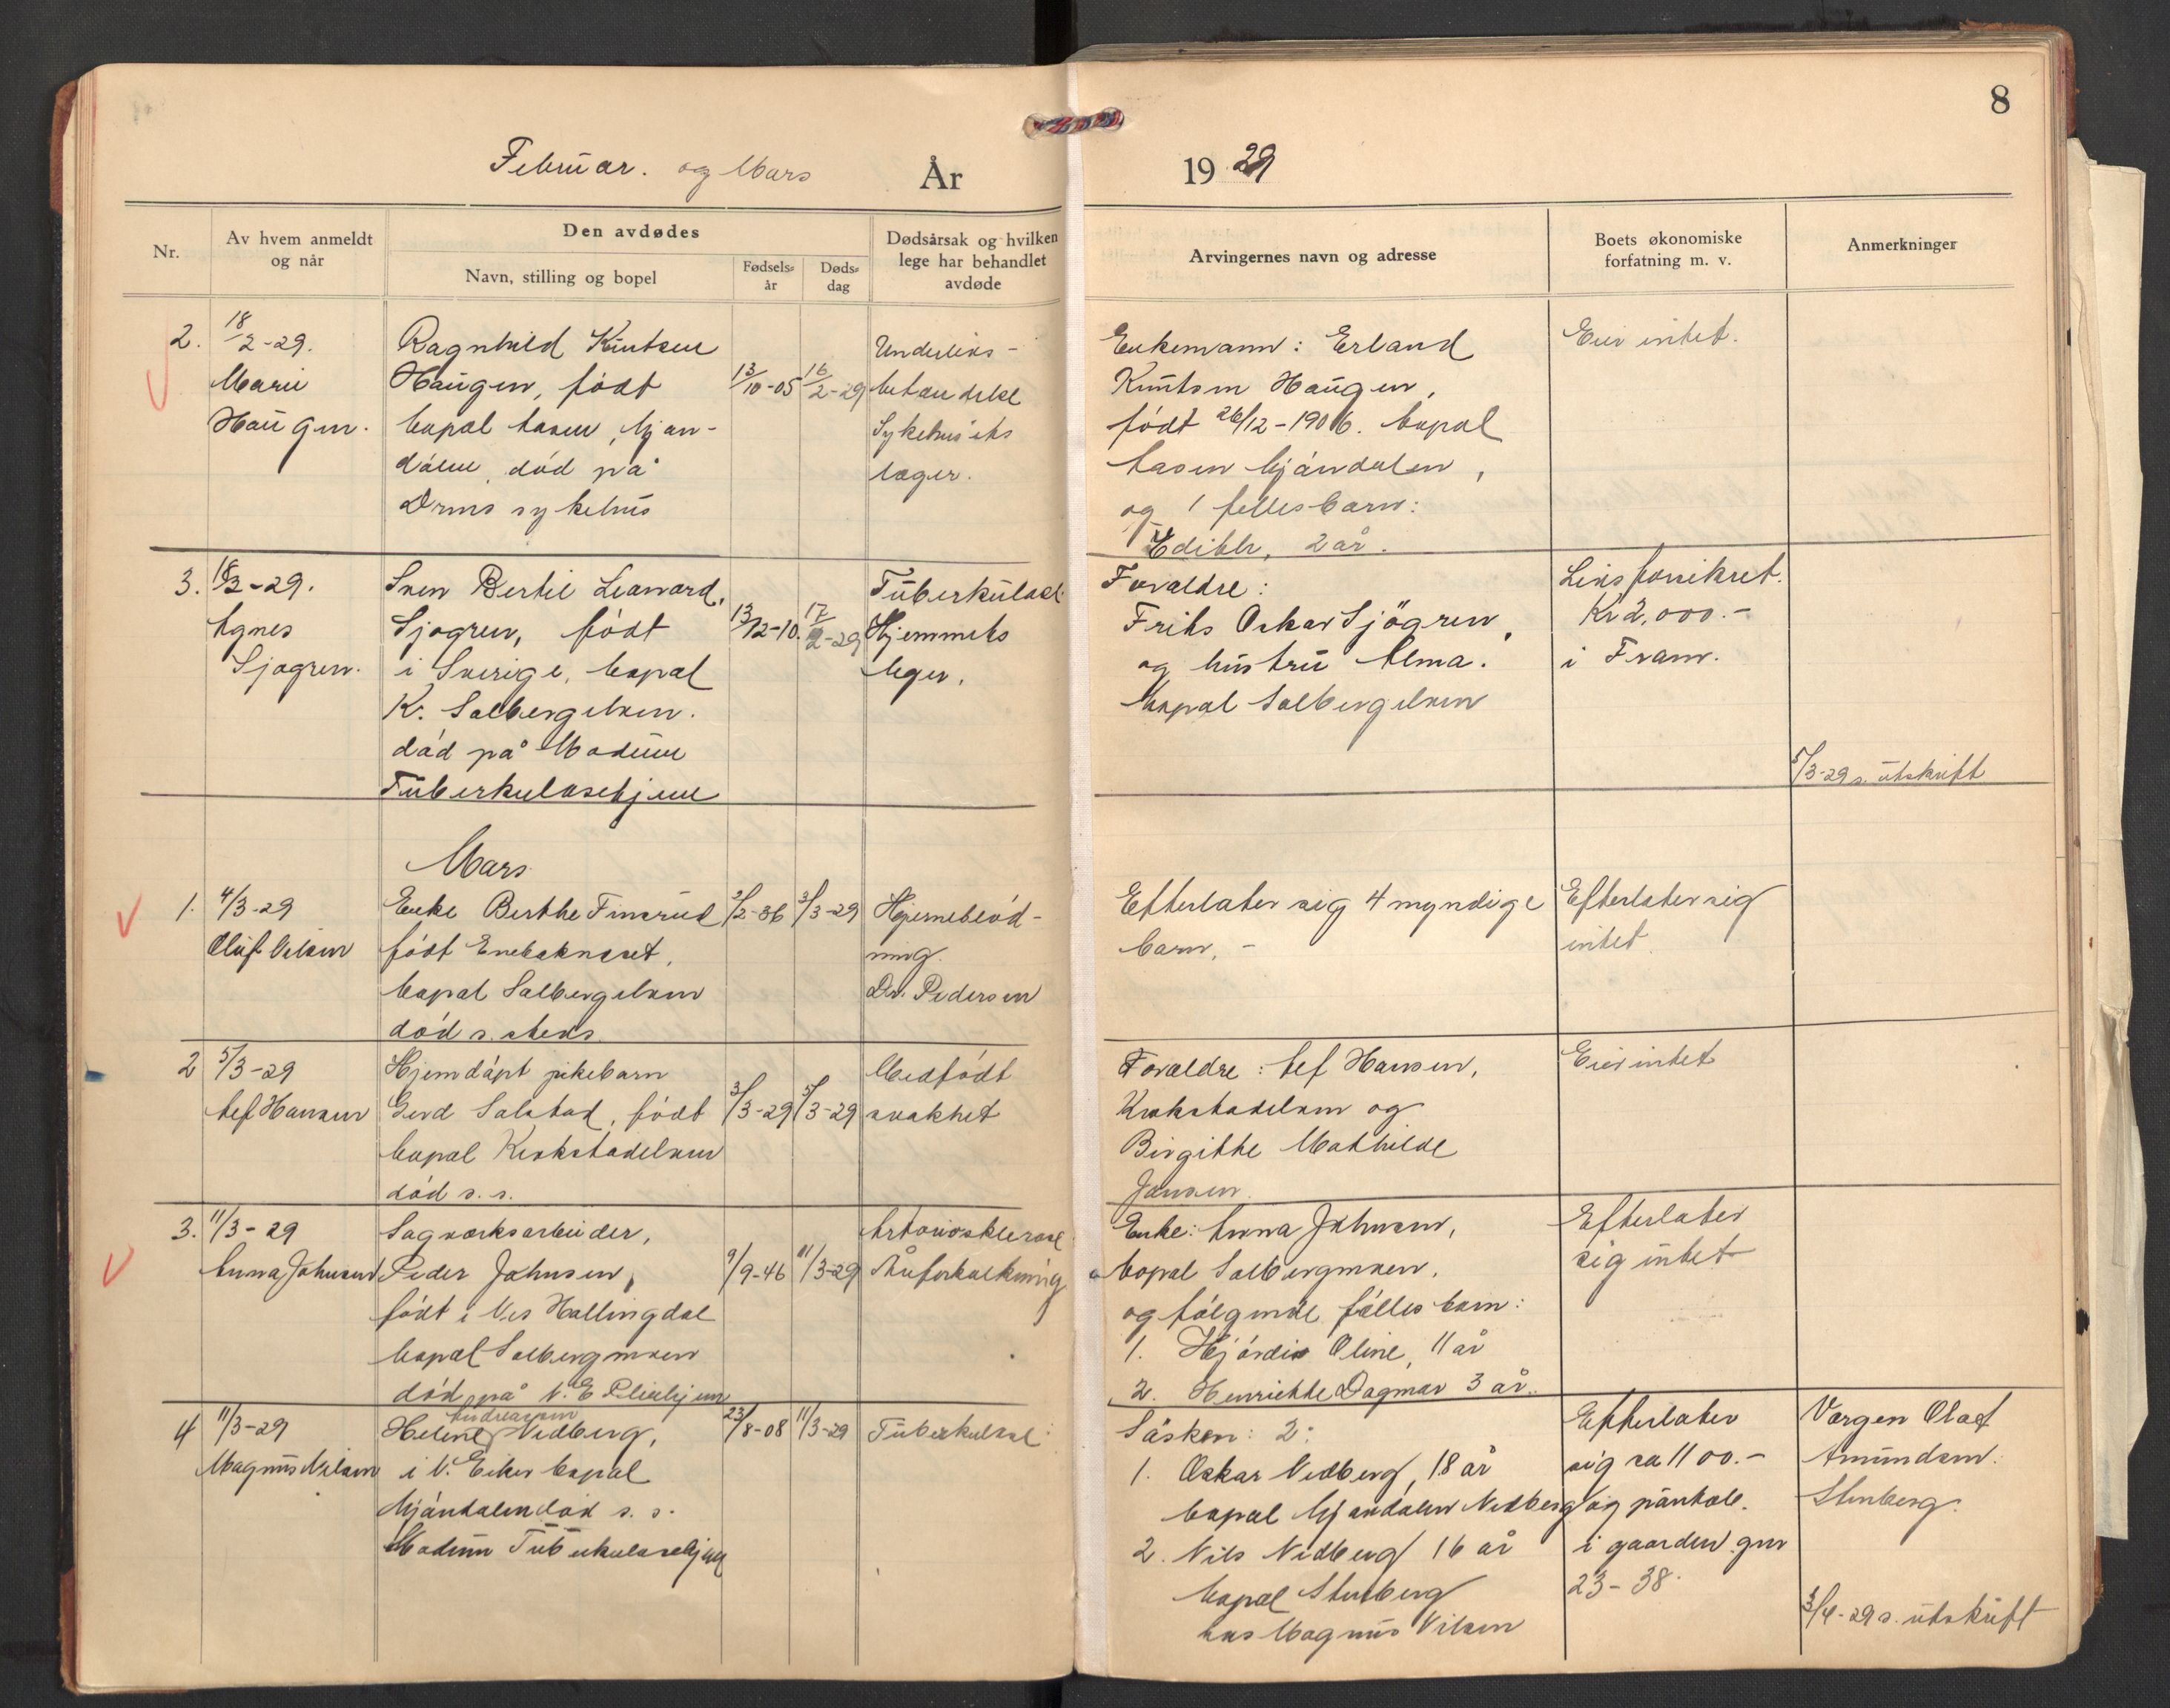 8
Februar. og Mars
År
19 29
Nr.
Av hvem anmeldt
og når
Den avdødes
Navn, stilling og bopel
Fødsels-
år
Døds-
dag
Dødsårsak og hvilken
lege har behandlet
avdøde
Arvingernes navn og adresse
Boets økonomiske
forfatning m. v.
Anmerkninger
2.
18/2-29.
Marie
Haugen.
Ragnhild Knutsen
Haugen, født
bopal Aasen, Mjøn-
dalen, død på
Drms sykehus
13/10-05
16/2-29
Underlivs-
betændelse
Sykehusets
læger.
Enkemann: Erland
Knutsen Haugen,
født 26/12-1906. bopal
Aasen Mjøndalen,
og 1 felles barn:
Edith, 2 år.
Eier intet.
3.
18/2-29.
Agnes
Sjøgren.
Sven Bertil Leonard,
Sjøgren, født
i Sverige, bopal
Kr. Solbergelven.
død på Modum
Tuberkulosehjem
13/12-10.
17/2-29
Tuberkulose
Hjemmets
leger.
Foreldre:
Frits Oskar Sjögren,
og hustru Alma.
bopal Solbergelven
Livsforsikret.
Kr 2,000.-
i Fram.
5/3-29 s. utskrift
Mars
1.
4/3-29
Oluf Nilsen
Enke Berthe Finsrud
født Enebaknæset,
bopal Solbergelven
død s. steds
2/2-36
3/3-29
Hjerneblød-
ning.
Dr. Pedersen
Efterlater sig 4 myndige
barn, -
Efterlater sig
intet
2
5/3-29
Alf Hansen
Hjemdøpt pikebarn
Gerd Solstad, født
bopal Krokstadelven
død s. s.
3/3-29
5/3-29
Medfødt
svakhet
Foreldre: Alf Hansen,
Krokstadelven og
Birgitte Mathilde
Jansen
Eier intet
3.
11/3-29
Anna Johnsen
Sagværksarbeider,
Peder Johnsen,
født i Nes Hallingdal
bopal Solbergmoen
død på N. E Pleiehjem
9/9-46
11/3-29
Arteriosklerose
Åreforkalkning
Enke: Anna Johnsen,
bopal Solbergmoen,
og følgende fælles barn:
1. Hjørdis Oline, 11 år
2. Henriette Dagmar 3 år.
Efterlater
sig intet
4
11/3-29
Magnus Nilsen
Andreassen
Helene Vedberg,
i N. Eiker bopal
Mjøndalen død s. s.
Modum Tuberkulosehjem
23/8-08
11/3-29
Tuberkulose
Søsken: 2:
1. Oskar Vedberg, 18 år
bopal Mjøndalen Vedberg
2. Nils Vedberg 16 år
bopal Stenberg
hos Magnus Nilsen
Efterlater
sig ca 1100.-
og pantobl.
i gaarden gnr
23-38.
Vergen Olaf
Amundsen.
Stenberg.
3/4-29 s. utskrift